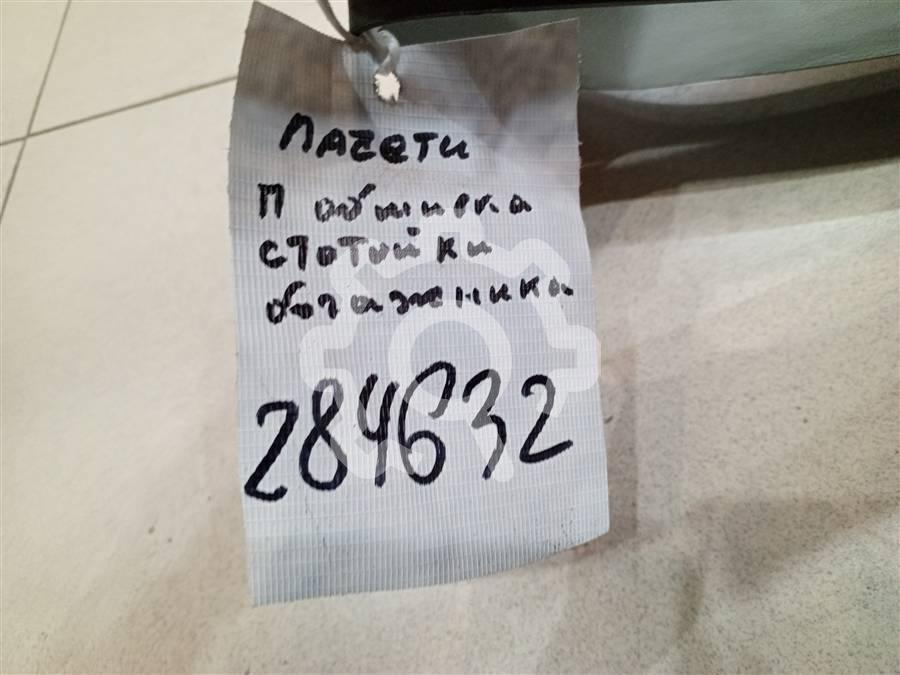 Лачети
П обшивка
стойки
багажника
284632